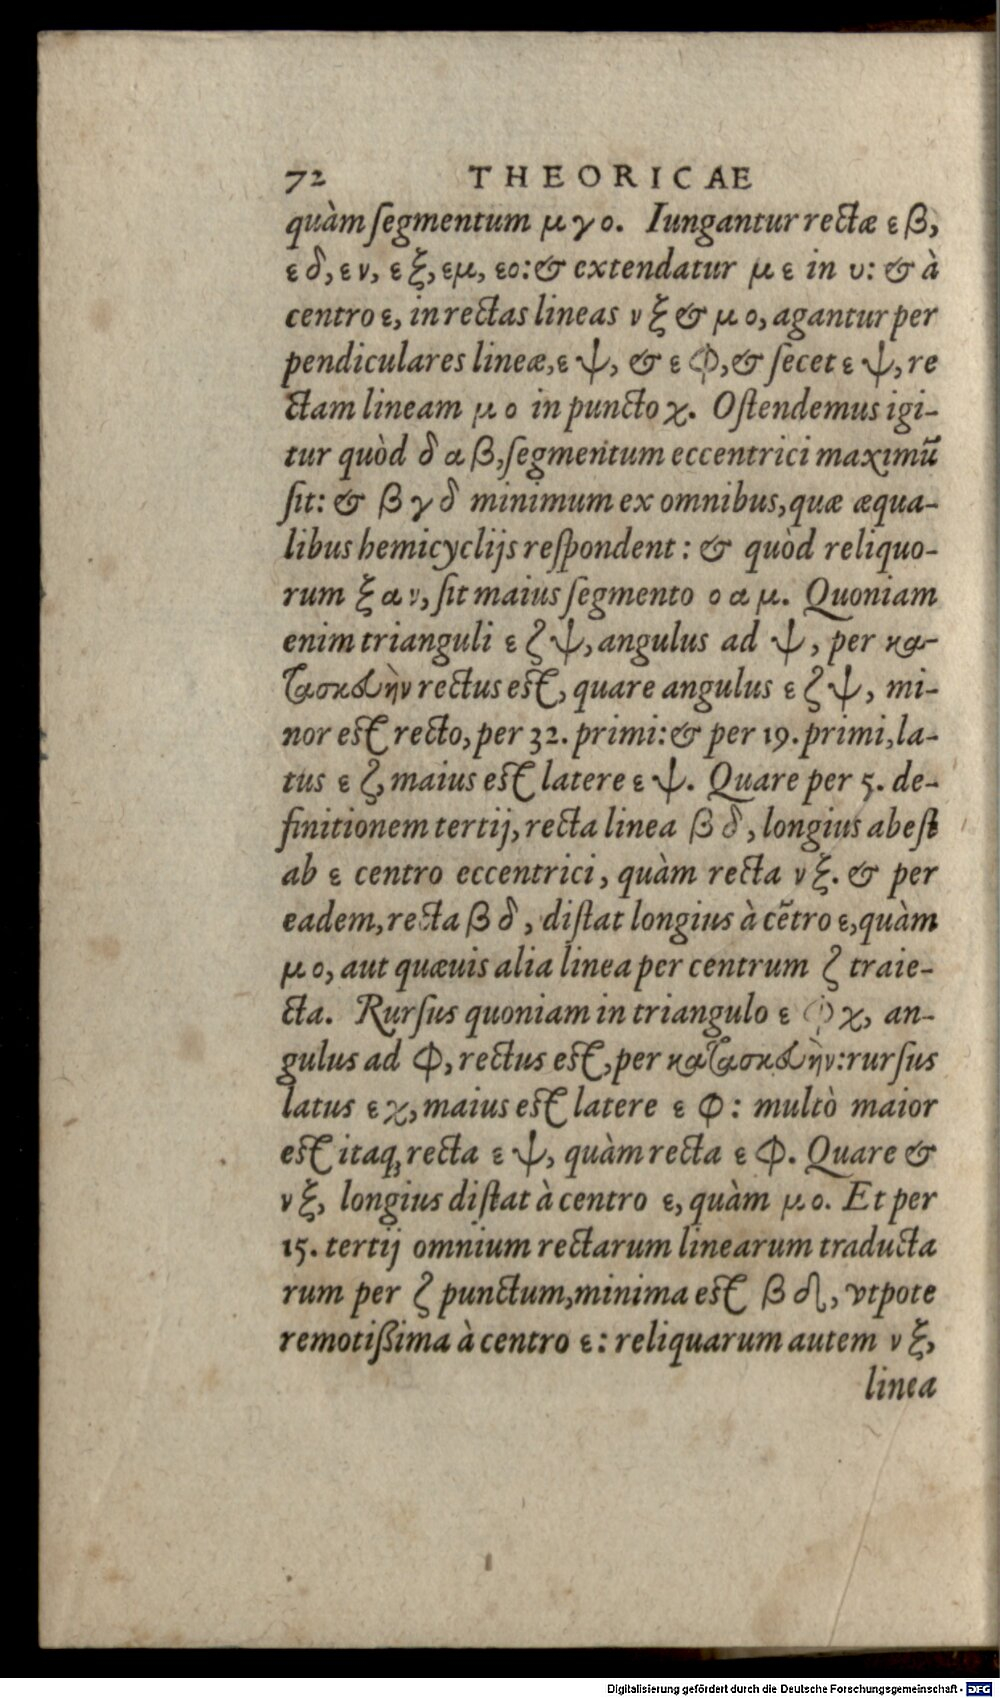 72 THEORICAE
quàm ſegmentum μ γ ο. Iungantur rectæ ε β,
ε δ, ε ν, ε ξ, εμ, εο: & extendatur μ ε in υ: & à
centro ε, in rectas lineas ν ξ & μ ο, agantur per
pendiculares lineæ, ε ψ, & ε φ, & ſecet ε ψ, re
ctam lineam μ ο in puncto χ. Oſtendemus igi-
tur quòd δ α β, ſegmentum eccentrici maximũ
ſit: & β γ δ minimum ex omnibus, quæ æqua-
libus hemicyclijs reſpondent: & quòd reliquo-
rum ξ α ν, ſit maius ſegmento ο α μ. Quoniam
enim trianguli ε ζ ψ, angulus ad ψ, per κα-
τασκευὴν rectus eſt, quare angulus ε ζ ψ, mi-
nor eſt recto, per 32. primi: & per 19. primi, la-
tus ε ζ, maius eſt latere ε ψ. Quare per 5. de-
finitionem tertij, recta linea β δ, longius abeſt
ab ε centro eccentrici, quàm recta ν ξ. & per
eadem, recta β δ, diſtat longius à cẽtro ε, quàm
μ ο, aut quæuis alia linea per centrum ζ traie-
cta. Rurſus quoniam in triangulo ε φ χ, an-
gulus ad φ, rectus eſt, per κατασκευὴν: rurſus
latus ε χ, maius eſt latere ε φ: multò maior
eſt itaq; recta ε ψ, quàm recta ε φ. Quare &
ν ξ, longius diſtat à centro ε, quàm μ ο. Et per
15. tertij omnium rectarum linearum traducta
rum per ζ punctum, minima eſt β δ, vtpote
remotißima à centro ε: reliquarum autem ν ξ,
linea
Digitalisierung gefördert durch die Deutsche Forschungsgemeinschaft - DFG